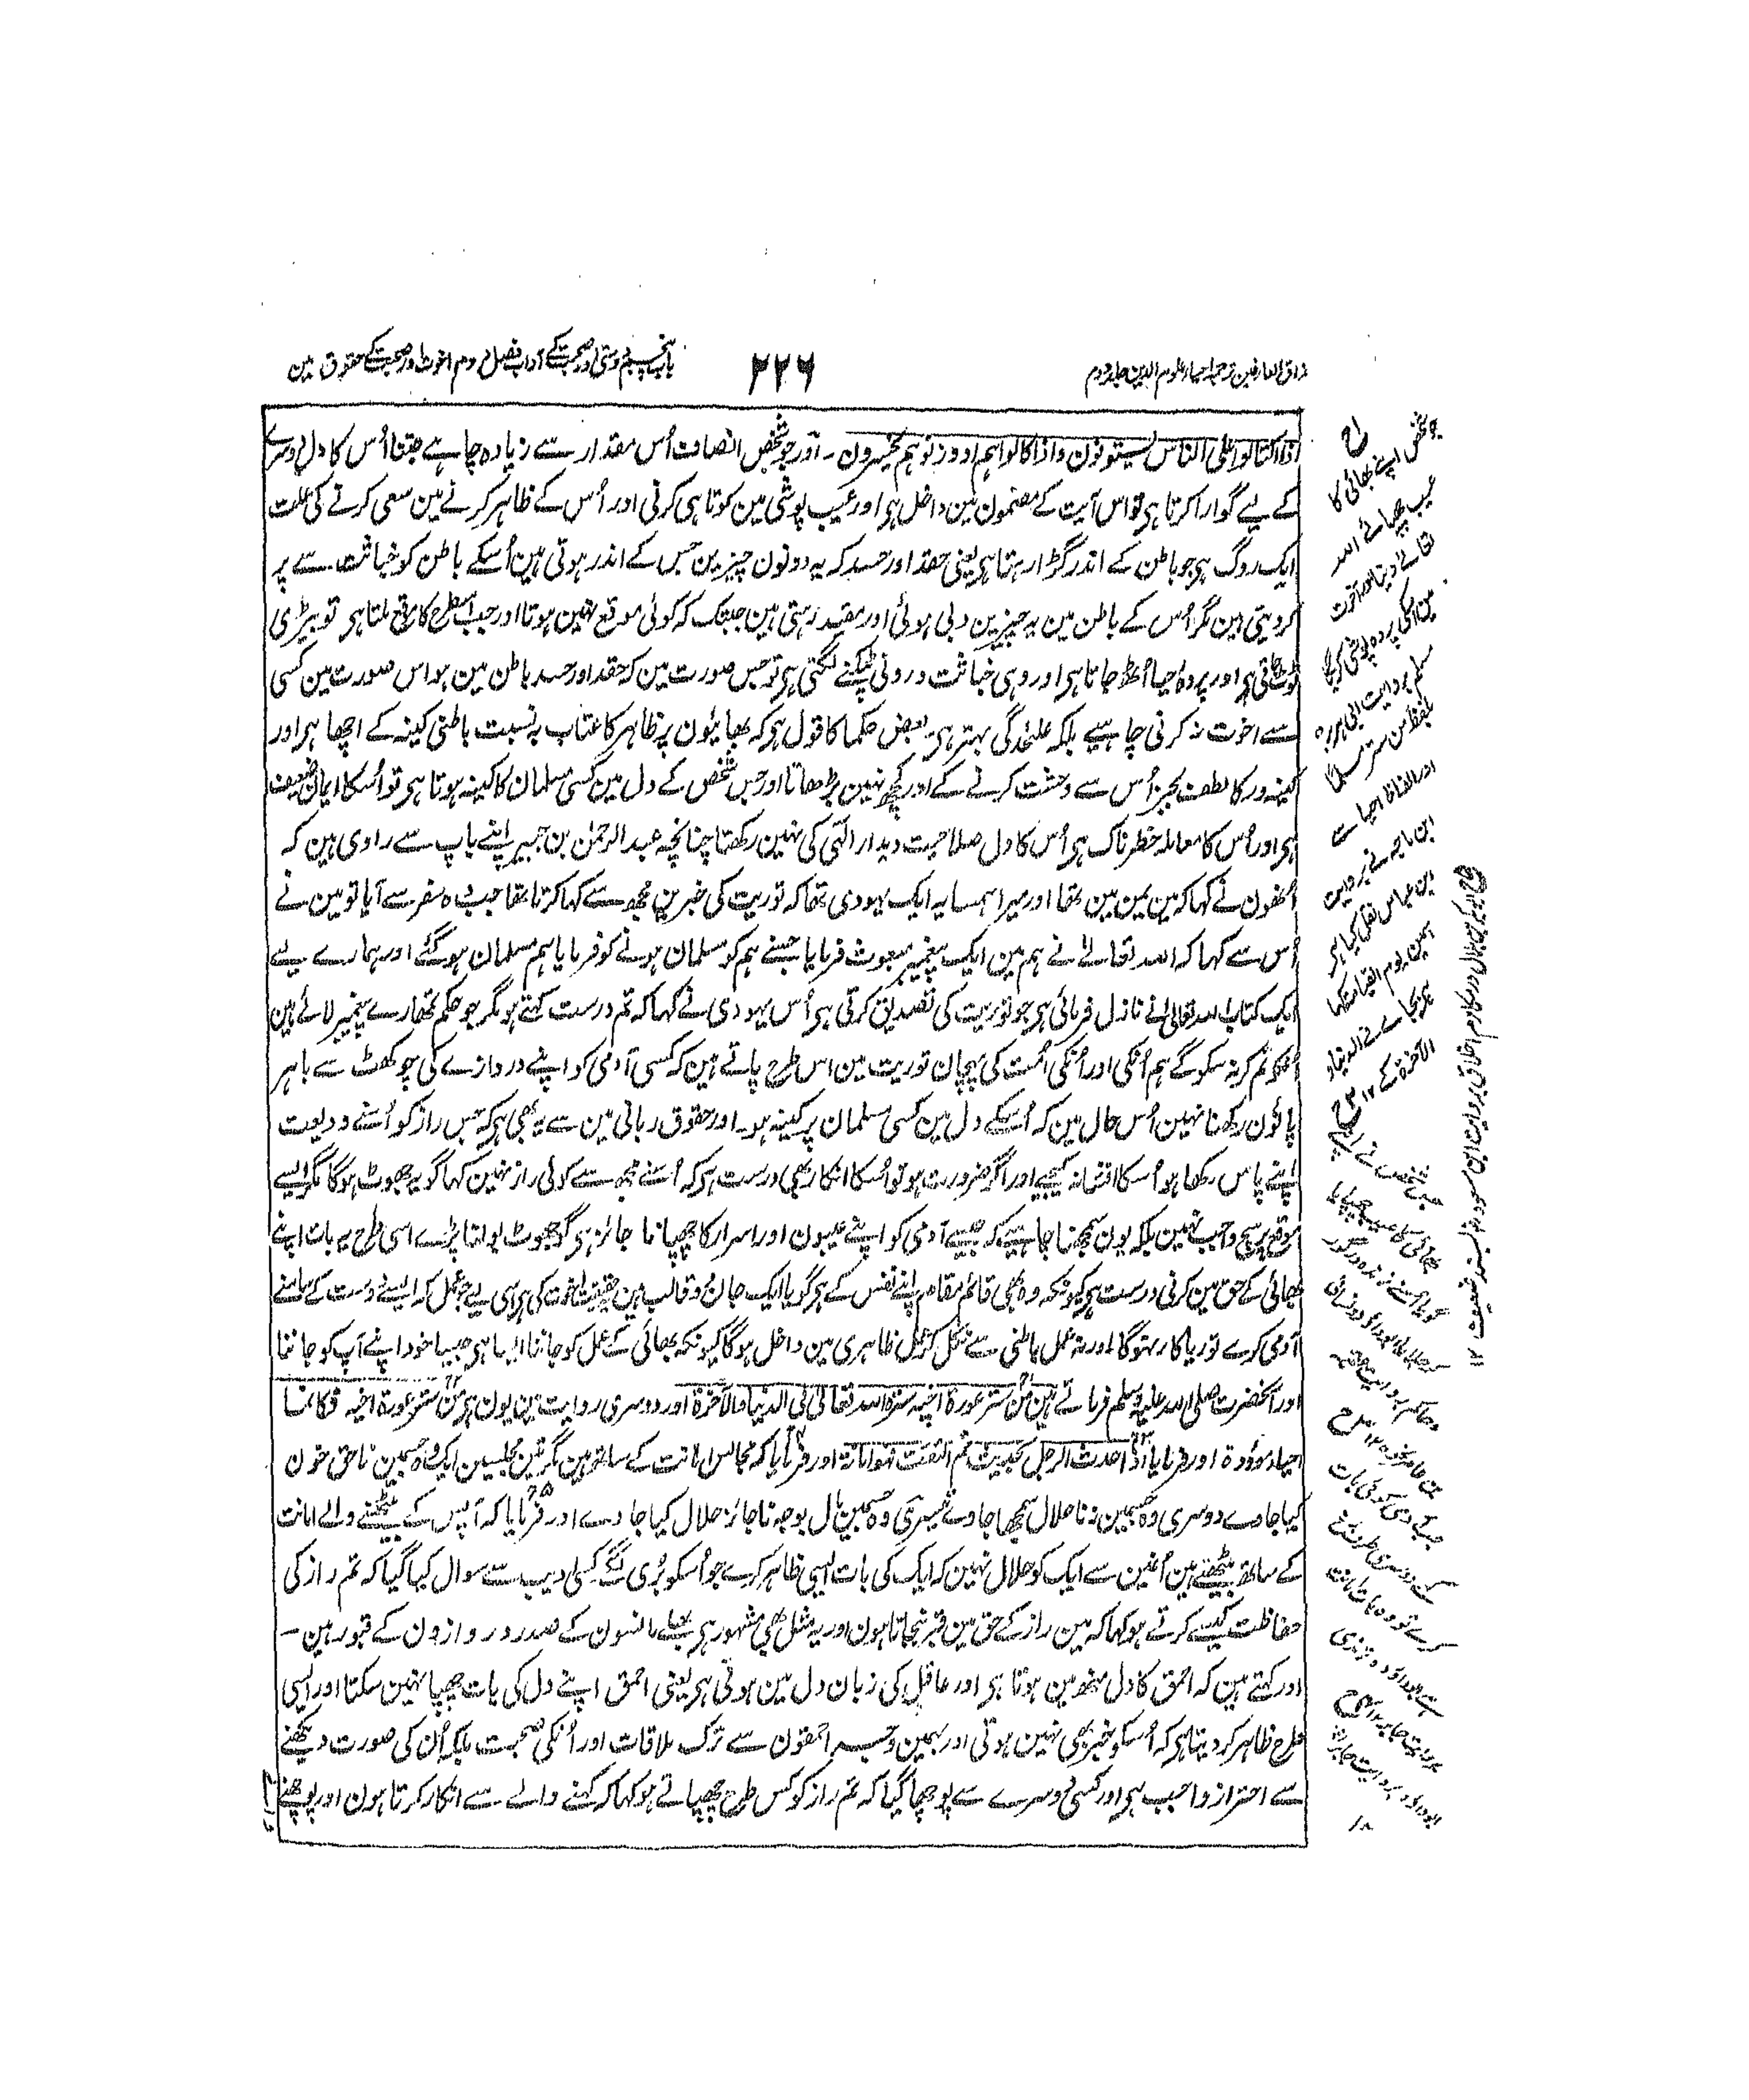 مذاق العارفین ترجمہ احیاء علوم الدین جلد دوم
۲۲۶
باب پنجم دوستی اور صحبت کے آداب فصل دوم اخوت اور صحبت کے حقوق مین
اذا اکتالوا علی الناس یستوفون واذا کالوا ہم اووزنوہم یخسرون ۔ اور جو شخص انصاف اُس مقدار سے زیادہ چاہے جتنا اُس کا دل دوسرے
کے لیے گوارا کرتا ہی تو اس آیت کے مضمون مین داخل ہی اور عیب پوشی مین کوتاہی کرنی اور اُس کے ظاہر کرنے مین سعی کرنے کی علت
ایک روگ ہی جو باطن کے اندر گڑا رہتا ہی یعنی حقد اور حسد کہ یہ دونون چیزین جس کے اندر ہوتی ہین اُسکے باطن کو خباثت سے پر
کردیتی ہین مگر اُس کے باطن مین یہ چیزین دبی ہوئی اور مقید رہتی ہین جبتک کہ کوئی موقع نہین ہوتا اور جب اسطرح کا موقع ملتا ہی تو بیڑی
ٹوٹ جاتی ہی اور پردہ حیا اُٹھ جاتا ہی اور وہی خباثت درونی ٹپکنے لگتی ہی تو جس صورت مین کہ حقد اور حسد باطن مین ہو اس صورت مین کسی
سے اخوت نہ کرنی چاہیے بلکہ علٰحدگی بہتر ہی۔ بعض حکما کا قول ہی کہ بھائیون پر ظاہر کا عتاب بہ نسبت باطنی کینہ کے اچھا ہی اور
کینہ ور کا لطف بجز اُس سے وحشت کرنے کے اور کچھ نہین بڑھاتا اور جس شخص کے دل مین کسی مسلمان کا کینہ ہوتا ہی تو اُسکا ایمان ضعیف
ہی اور اُس کا معاملہ خطرناک ہی اُس کا دل صلاحیت دیدار الٰہی کی نہین رکھتا چنانچہ عبد الرحمٰن بن جبیر اپنے باپ سے راوی ہین کہ
اُنھون نے کہا کہ مین یمن مین تھا اور میرا ہمسایہ ایک یہودی تھا کہ توریت کی خبرین مجھ سے کہا کرتا تھا جب وہ سفر سے آیا تو مین نے
اُس سے کہا کہ اللہ تعالےٰ نے ہم مین ایک پیغمبر مبعوث فرمایا جسنے ہم کو مسلمان ہونے کو فرمایا ہم مسلمان ہوگئے اور ہمارے لیے
ایک کتاب اللہ تعالیٰ نے نازل فرمائی ہی جو توریت کی تصدیق کرتی ہی اُس یہودی نے کہا کہ تم درست کہتے ہو مگر جو حکم تمھارے پیغمبر لائے ہین
اُسکو تم کر نہ سکوگے ہم اُنکی اور اُنکی اُمت کی پہچان توریت مین اس طرح پاتے ہین کہ کسی آدمی کو اپنے دروازے کی چوکھٹ سے باہر
پاؤن رکھنا نہین اُس حال مین کہ اُسکے دل مین کسی مسلمان پر کینہ ہو۔ اور حقوق زبانی مین سے یہ بھی ہی کہ جس راز کو اُسنے ودیعت
اپنے پاس رکھا ہو اُسکا افشا نہ کیجیے اور اگر ضرورت ہو تو اُسکا انکار بھی درست ہی کہ اُسنے مجھ سے کوئی راز نہین کہا گو یہ جھوٹ ہوگا مگر ایسے
موقع پر سچ واجب نہین بلکہ یون سمجھنا چاہیے کہ جیسے آدمی کو اپنے عیبون اور اسرار کا چھپانا جائز ہی گو جھوٹ بولنا پڑے اسی طرح یہ بات اپنے
بھائی کے حق مین کرنی درست ہی کیونکہ وہ بھی قائم مقام اپنے نفس کے ہی گویا ایک جان دو قالب ہین حقیقت اخوت کی ہی اسی لیے جو عمل کہ ایسے دوست کے سامنے
آدمی کرے تو ریاکار نہوگا اور نہ عمل باطنی سے نکل کر عمل ظاہری مین داخل ہوگا کیونکہ بھائی کے عمل کو جاننا ایسا ہی جیسا خود اپنے آپ کو جاننا
اور آنحضرت صلی اللہ علیہ وسلم فرماتے ہین من ستر عورۃ اخیہ سترہ اللہ تعالیٰ فی الدنیا والآخرۃ اور دوسری روایت مین یون ہی من ستر عورۃ اخیہ فکانما
احیا موؤدۃ اور فرمایا اذا حدث الرجل بحدیث ثم التفت فہو امانۃ اور فرمایا کہ مجالس امانت کے ساتھ ہین مگر تین مجلسین ایک وہ جسمین ناحق خون
کیا جاوے دوسری وہ جسمین زنا حلال سمجھا جاوے تیسری وہ جسمین مال بوجہ ناجائز حلال کیا جاوے اور فرمایا کہ آپس کے بیٹھنے والے امانت
کے ساتھ بیٹھتے ہین اُنمین سے ایک کو حلال نہین کہ ایک کی بات ایسی ظاہر کرے جو اُسکو بُری لگے کسی ادیب سے سوال کیا گیا کہ تم راز کی
حفاظت کیسے کرتے ہو کہا کہ مین راز کے حق مین قبر بنجاتا ہون اور یہ مثل بھی مشہور ہی بھلے مانسون کے صدر رازون کے قبور ہین ۔
اور کہتے ہین کہ احمق کا دل منھ مین ہوتا ہی اور عاقل کی زبان دل مین ہوتی ہی یعنی احمق اپنے دل کی بات چھپا نہین سکتا اور اسی
طرح ظاہر کردیتا ہی کہ اُسکو خبر بھی نہین ہوتی اور بہمین وجہ احمقون سے ترک ملاقات اور اُنکی صحبت بلکہ اُن کی صورت دیکھنے
سے احتراز واجب ہی اور کسی دوسرے سے پوچھا گیا کہ تم راز کو کس طرح چھپاتے ہو کہا کہ کہنے والے سے انکار کرتا ہون اور پوچھنے
جو شخص اپنے بھائی کا
عیب چھپائے اللہ
تعالےٰ دنیا اور آخرت
مین اُسکی پردہ پوشی کریگا
مسلم بروایت ابی ہریرہ
بلفظ من ستر مسلما
اور الفاظ احیا سے
ابن ماجہ نے بروایت
ابن عباس نقل کیا ہی
ہمین یوم القیامۃ کہا
ہی بجاے فی الدنیا و
الآخرۃ کے ۱۲
جس شخص نے اپنے
بھائی کا عیب چھپایا
گویا اُسنے زندہ درگور
کو جلایا ابوداؤد و نسائی
وحاکم بروایت عقبہ
بن عامر ۱۲
جب آدمی کوئی بات
کرے تو وہ امانت
ابوداؤد و ترمذی
بروایت جابر ۱۲
ابوداؤد بروایت جابر